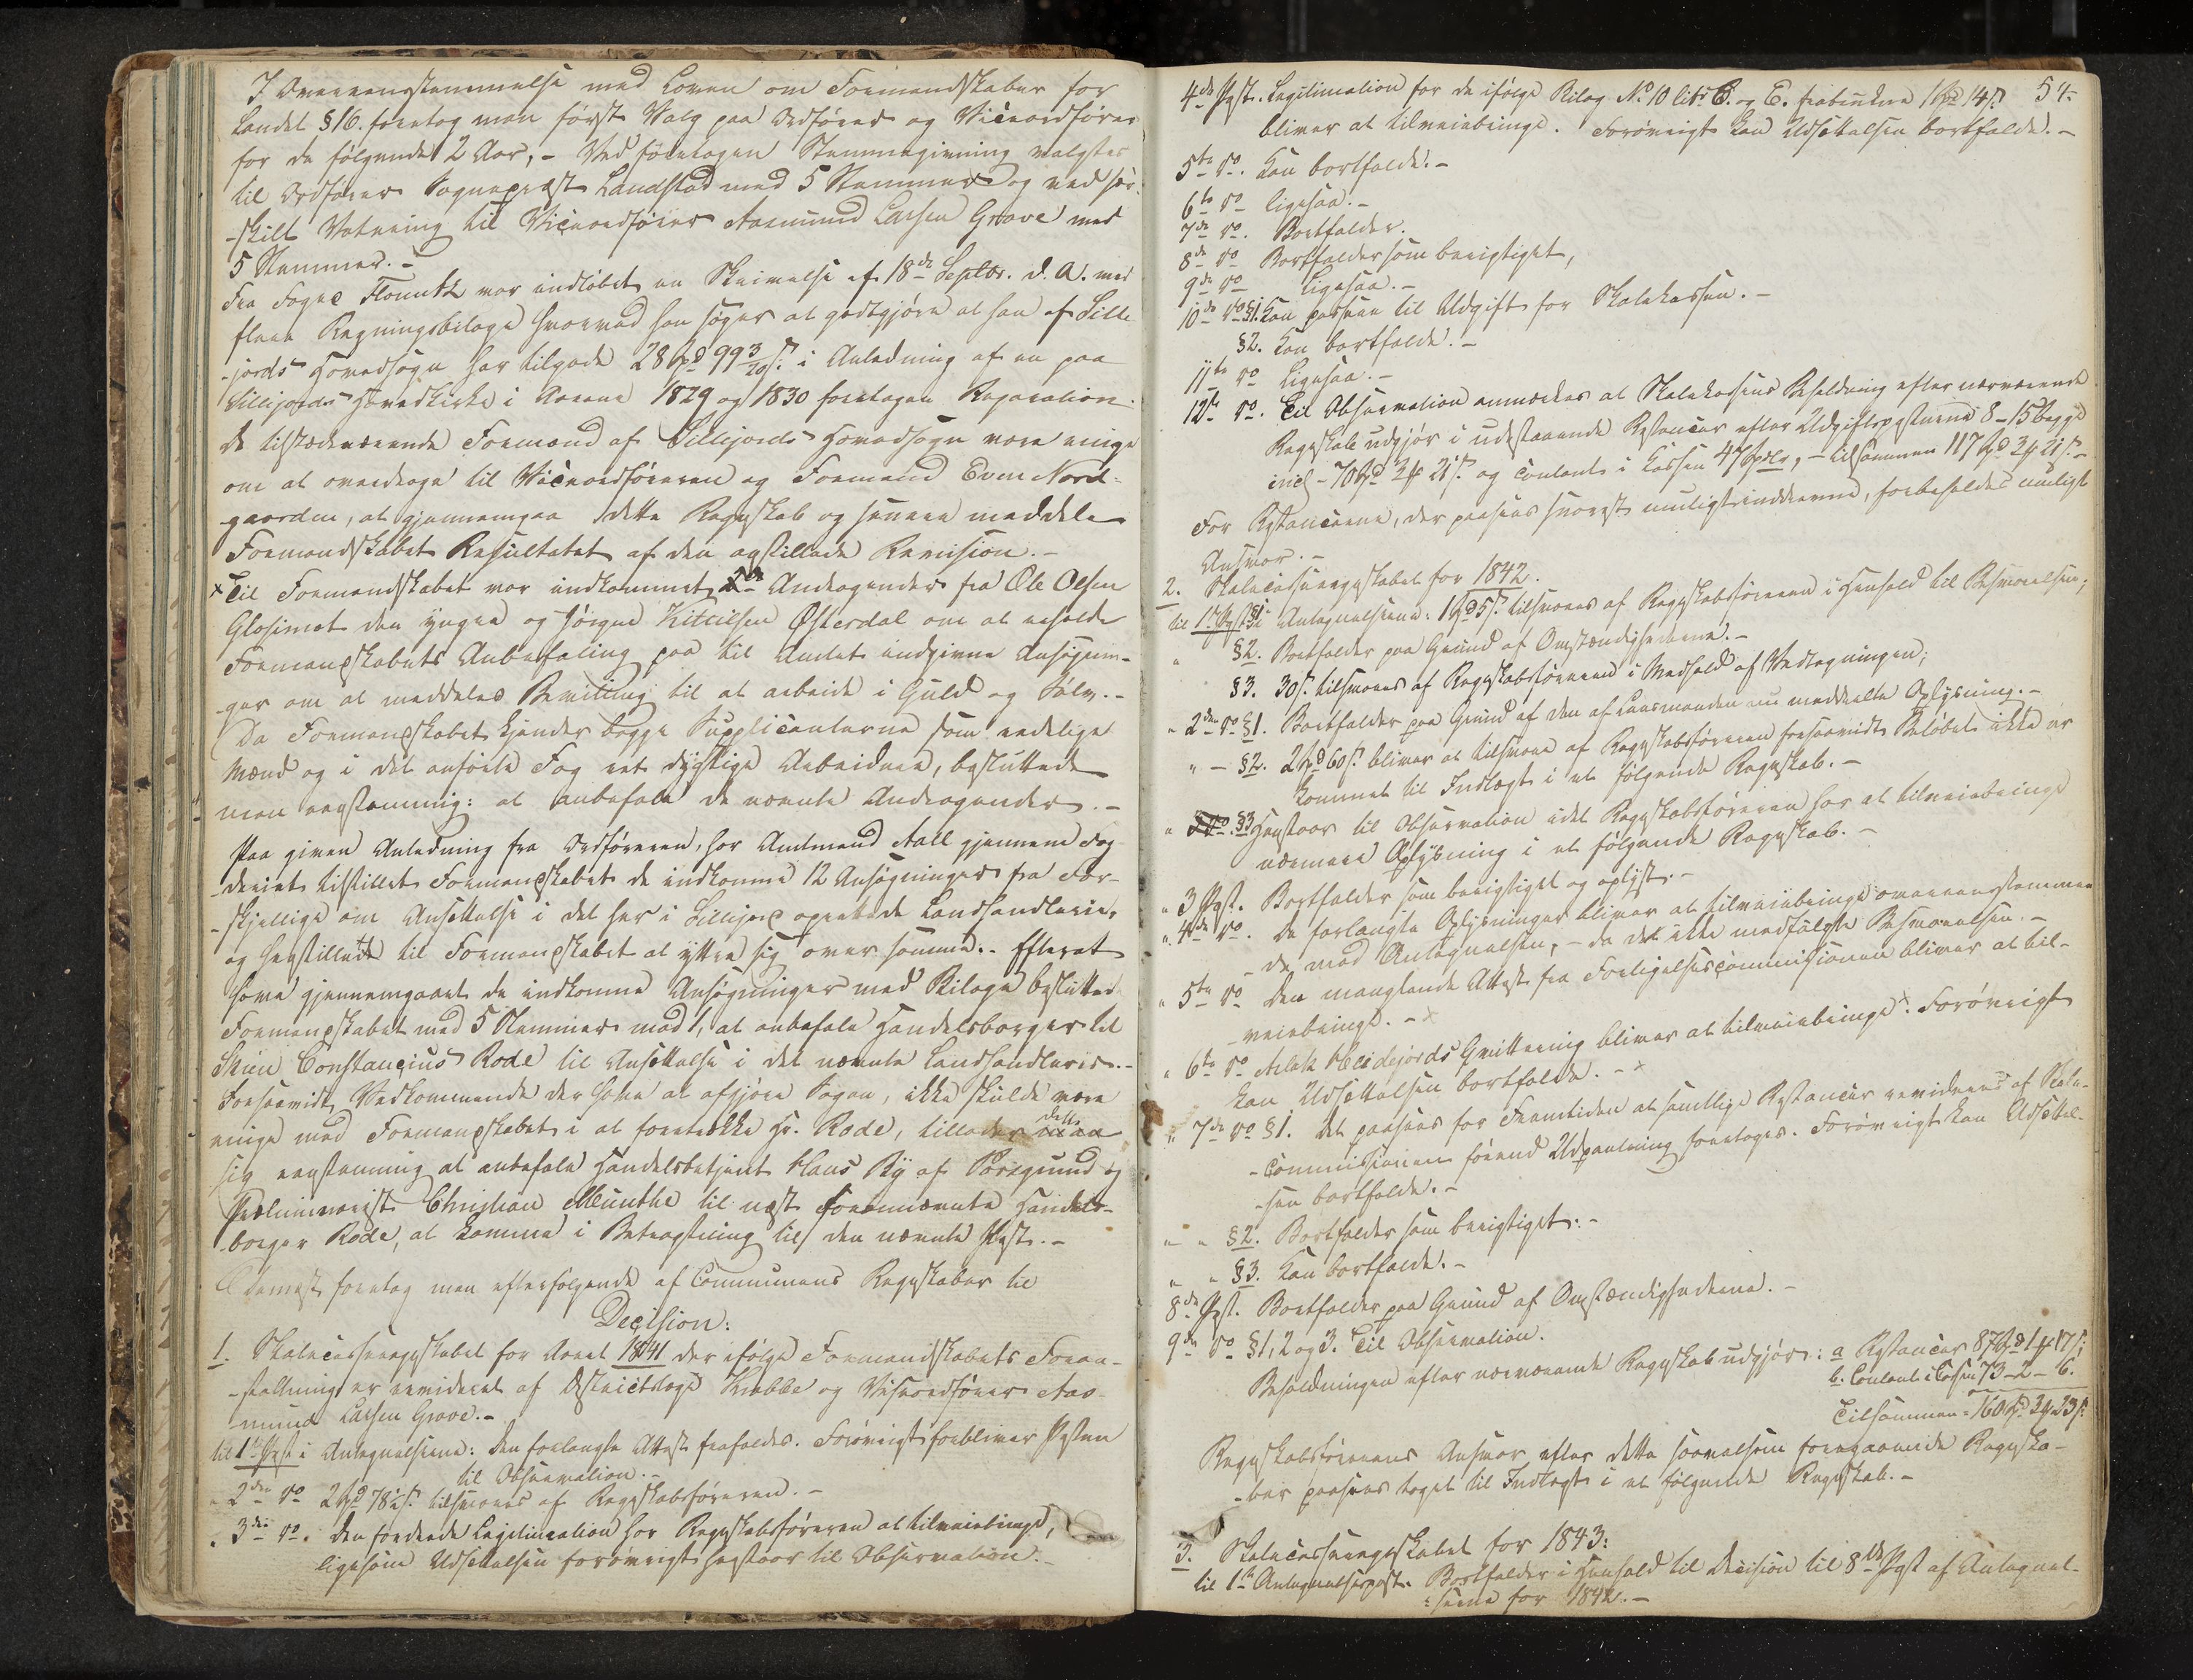 I Overeensstemmelse med Loven om Formandskaber for
Landet §16. foretog man først Valg paa Ordfører og Viceordfører
for de følgende 2 Aar, - Ved foretagen Stemmegivning valgtes
til Ordfører Sognepræst Landstad med 5 Stemmer og ved sær-
-skilt Votering til Viceordfører Aasmund Larsen Grave med
5 Stemmer. -
Fra Foged Flountz var indløbet en Skrivelse af 18de Septbr. d. A. med
flere Regningsbilage hvorved han søger at godtgjøre at han af Sille
-jords Hovedsogn har tilgode 28 Spd 99 3/20 s. i Anledning af en paa
Sillejords Hovedkirke i Aarene 1829 og 1830 foretagen Reparation.
De tilstedeværende Formænd af Sillejords Hovedsogn vare enige
om at overdrage til Viceordføreren og Formand Even Nord-
-gaarden, at gjennemgaa dette Regnskab og senere meddele
Formandskabet Resultatet af den anstillede Revision. -
x Til Formandskabet var indkommet 2de Andragender fra Ole Olsen
Glosimot den yngre og Jørgen Kittilsen Østerdal om at erholde
Formandskabets Anbefaling paa til Amtet indgivne Ansøgnin-
-ger om at meddeles Bevilling til at arbeide i Guld og Sølv. -
Da Formandskabet kjender begge Supplicanterne som redelige
Mænd og i det anførte Fag ret dygtige Arbeidere, besluttede
man eenstemmig: at anbefale de nævnte Andragender. -
Paa given Anledning fra Ordføreren, har Amtmand Aall gjennem Fog-
-deriet tilstillet Formandskabet de indkomne 12 Ansøgninger fra For-
-skjellige om Ansættelse i det her i Sillejord oprettede Landhandlerie,
og henstillede til Formandskabet at yttre sig over samme. - Efterat
have gjennemgaaet de indkomne Ansøgninger med Bilage beslutted
Formandskabet med 5 Stemmer mod 1, at anbefale Handelsborger til
Skien Constancius Rode til Ansættelse i det nævnte Landhandlerie. -
Forsaavidt Vedkommende der have at afgjøre Sagen, ikke skulde være
enige med Formandskabet i at foretrække Hr. Rode, tillader dette
sig eenstemmig at anbefale Handelsbetjent Hans Ry af Porsgrund og
Præliminarist Christian Munthe til næst fornævnte Handels-
-borger Rode, at komme i Betragtning til den nævnte Post. -
Dernæst foretog man efterfølgende af Communens Regnskaber til
Decision:
1. Skolecasseregnskabet for Aaret 1841 der ifølge Formandskabets Foran-
-staltning er revideret af Districtslæge Krebbe og Viceordfører Aas-
-mund Larsen Grave. -
til 1ste Post i Antegnelserne: Den forlangte Attest frafaldes. Forøvrigt forbliver Posten
til Observation. -
" 2den do 2 Spd 78½ s. tilsvares af Regnskabsføreren. -
" 3die do. Den fordrede Legitimation har Regnskabsføreren at tilveiebringe,
ligesom Udsættelsen forøvrigt henstaar til Observation. -
54.
4de Post. Legitimation for de ifølge Bilag No 10 litr C. og E. 1 Spd 14 s.
bliver at tilveiebringe. Forøvrigt kan Udsættelsen bortfalde. -
5te do. Kan bortfalde. -
6te do ligesaa. -
7de do. Bortfalder.
8de do Bortfalder som berigtiget,
9de do Ligesaa. -
10de do §1. Kan passere til Udgift for Skolekassen. -
§2. Kan bortfalde. -
11te do Ligesaa. -
12te do. Til Observation anmærkes at Skolekassens Beholdning efter nærværende
Regnskab udgjør i udestaaende Restancer efter Udgiftsposterne 8 - 15 begge
incl - 70 Spd 3 # 21 s. og contant i Kassen 47 Spdlr, - tilsammen 117 Spd 3 # 21 s. -
For Restancerne, der paasees snarest muligt inddrevne, forbeholdes muligt
Ansvar. -
2. Skolecasseregnskabet for 1842.
til 1ste Post §1 i Antegnelserne: 1 Spd 5 s. tilsvares af Regnskabsføreren i Henhold til Besvarelsen;
" §2. Bortfalder paa Grund af Omstændighederne. -
§3. 30 s. tilsvares af Regnskabsføreren i Medhold af Vedtegningen;
" 2den do §1. Bortfalder paa Grund af den af Lensmanden nu meddeelte Oplysning. -
" - §2. 2 Spd 60 s. bliver at tilsvare af Regnskabsføreren forsaavidt Beløbet ikke er
kommet til Indtægt i et følgende Regnskab. -
" §3 Henstaar til Observation idet Regnskabsføreren har at tilveiebringe
nærmere Oplysning i et følgende Regnskab. -
" 3 Post. Bortfalder som berigtiget og oplyst. -
" 4de do. De forlangte Oplysninger bliver at tilveiebringe overeensstemmen
-de med Antegnelsen, - da det ikke medfølgte Besvarelsen. -
" 5te do Den manglende Attest fra Forligelsescommissionen bliver at til-
-veiebringe. - x
" 6te do Aslak Heidejords Qvittering bliver at tilveiebringe. x Forøvrigt
kan Udsættelsen bortfalde. - x
" 7de do §1. Det paasees for Fremtiden at samtlige Restancer revideres af Skole-
-commissionen førend Udpantning foretages. Forøvrigt kan Udsættel-
-sen bortfalde. -
" " §2. Bortfalder som berigtiget. -
" " §3. Kan bortfalde. -
8de Post. Bortfalder paa Grund af Omstændighederne. -
9de do §1, 2 og 3. Til Observation.
Beholdningen efter nærværende Regnskab udgjør: a Restancer 87 Spd 1 # 17 s;
b. Contant i Cassen 73 - 2 - 6.
Tilsammen = 160 Spd 3 # 23 s.
Regnskabsførerens Ansvar efter dette saavelsom foregaaende Regnska-
-ber paasees taget til Indtægt i et følgende Regnskab. -
3. Skolecasseregnskabet for 1843:
til 1ste Antegnelsespost. Bortfalder i Henhold til Decision til 8de Post af Antegnel-
-serne for 1842. -